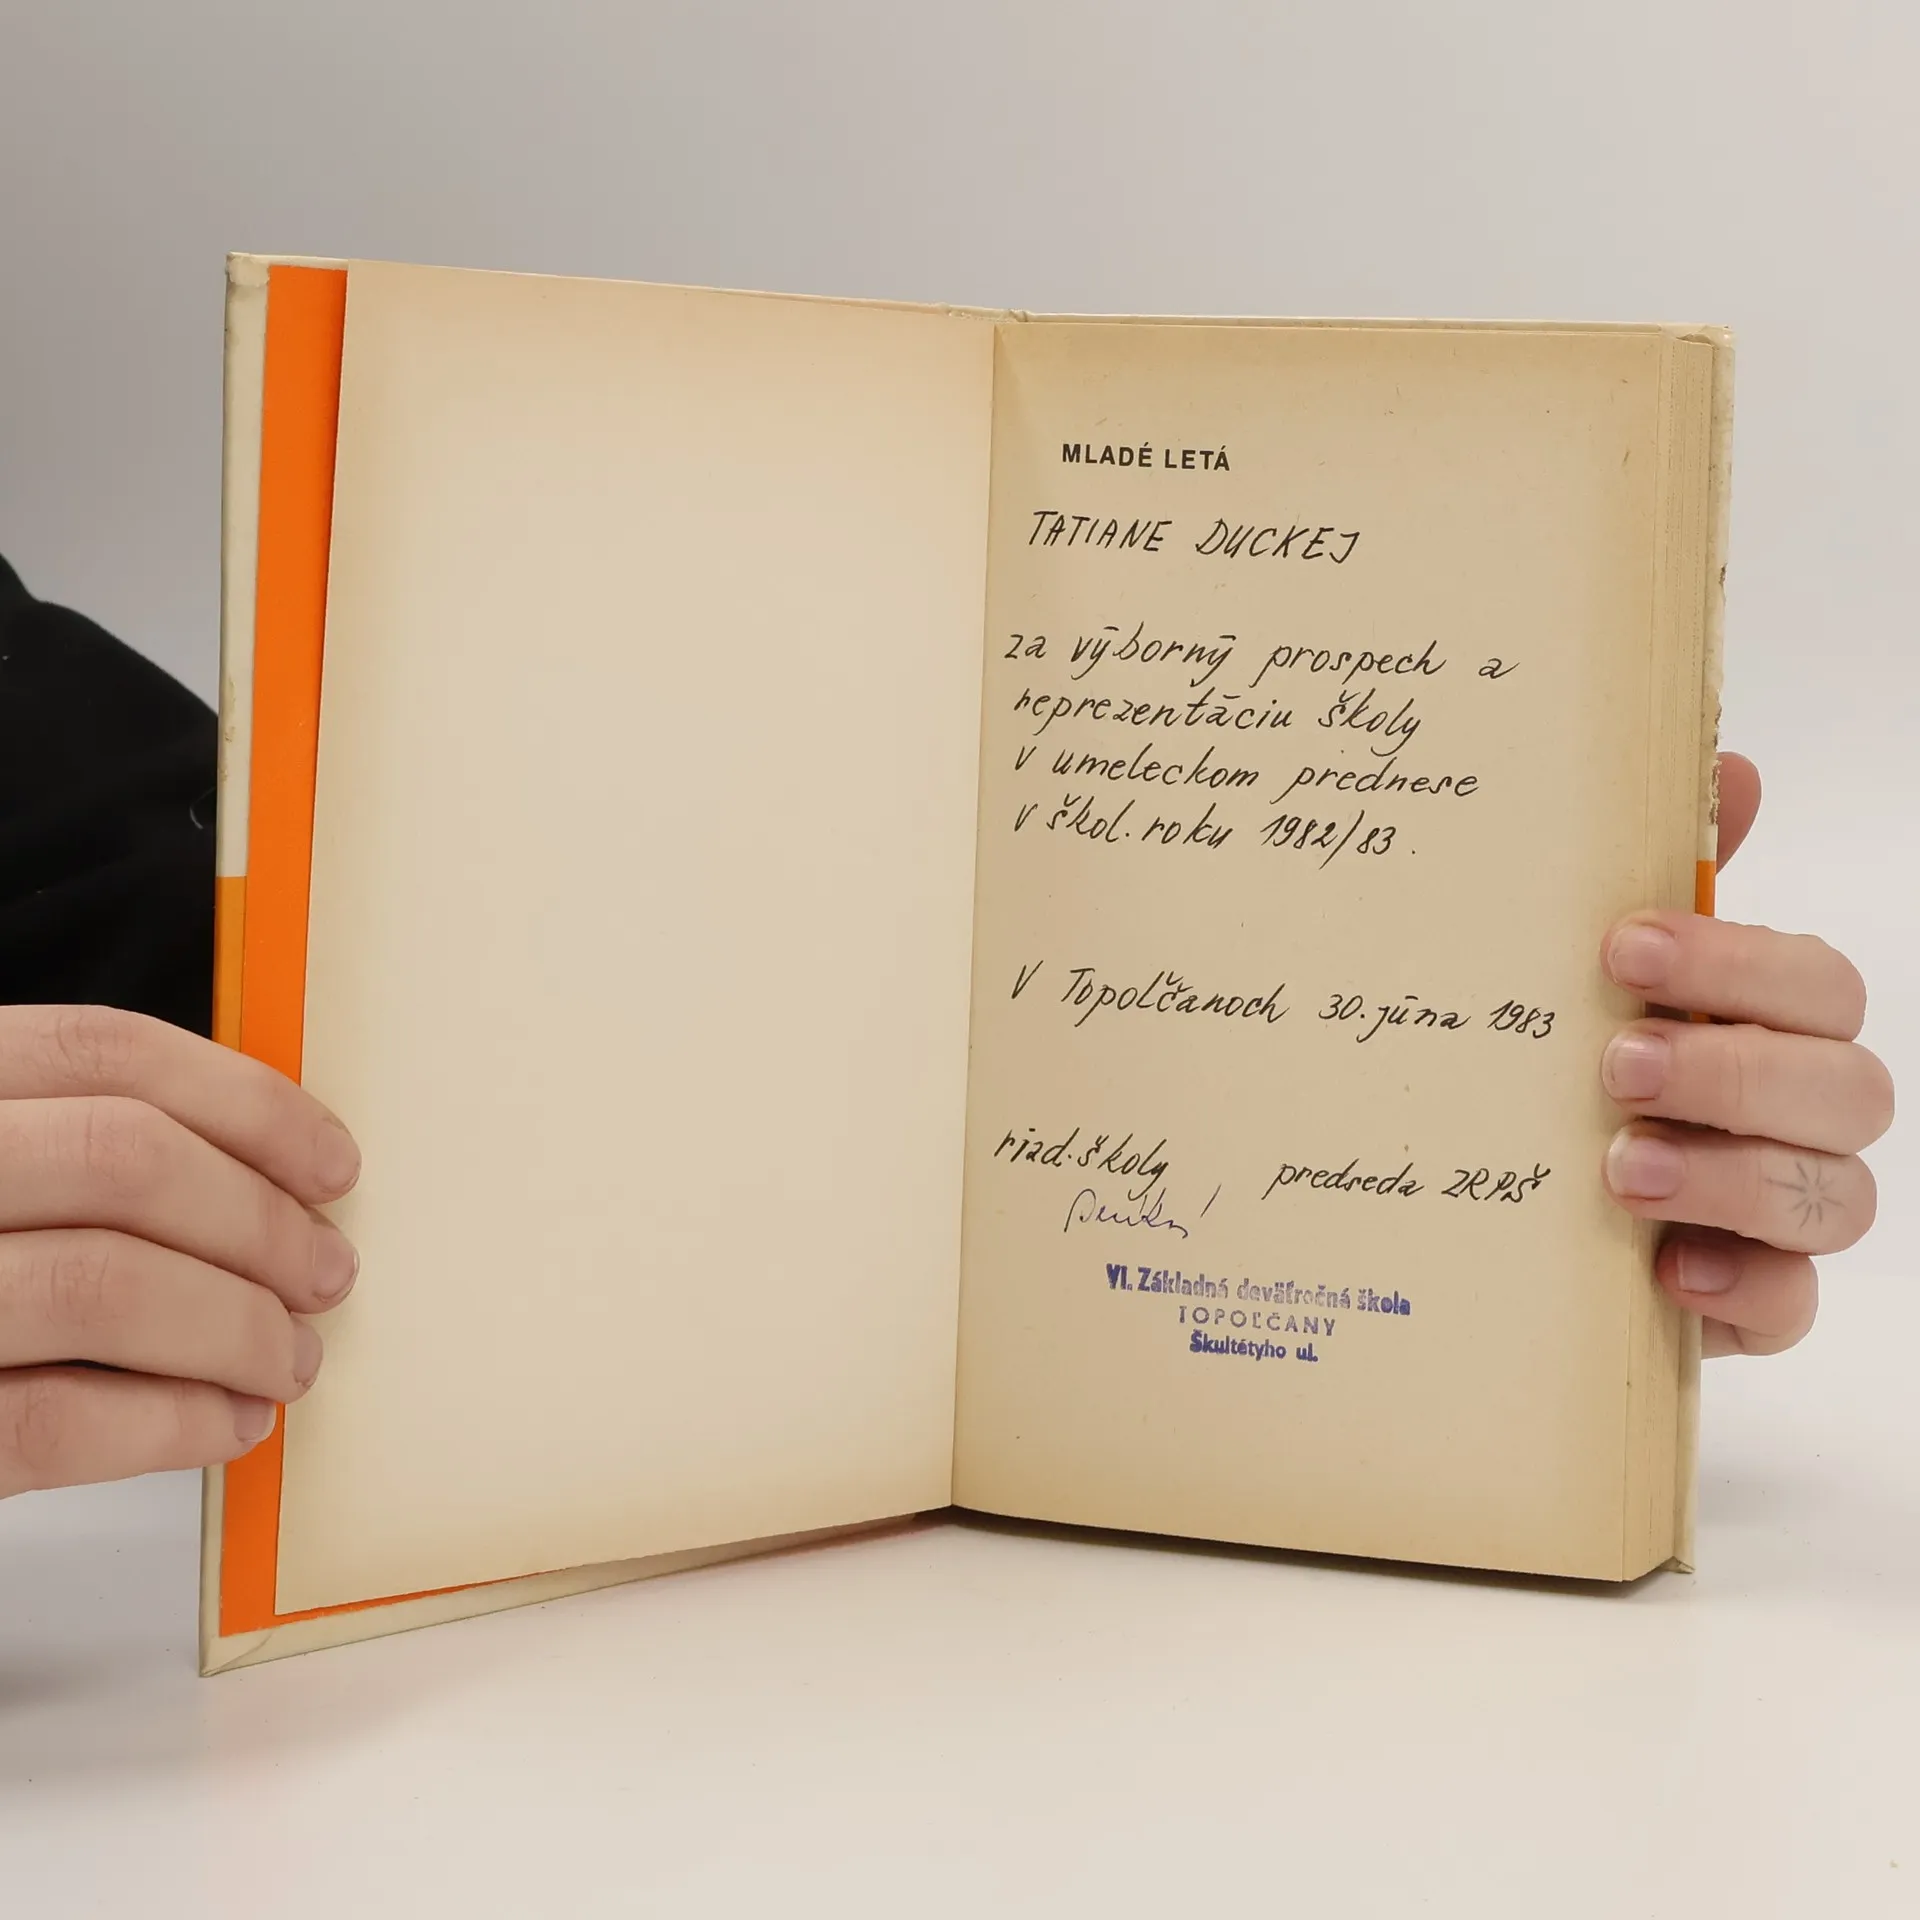 MLADÉ LETÁ
TATIANE DUCKEJ
za výborný prospech a
reprezentáciu školy
v umeleckom prednese
v škol. roku 1982/83.
V Topoľčanoch 30. júna 1983
riad. školy predseda ZRPŠ
VI. Základná deväťročná škola
TOPOĽČANY
Škultétyho ul.